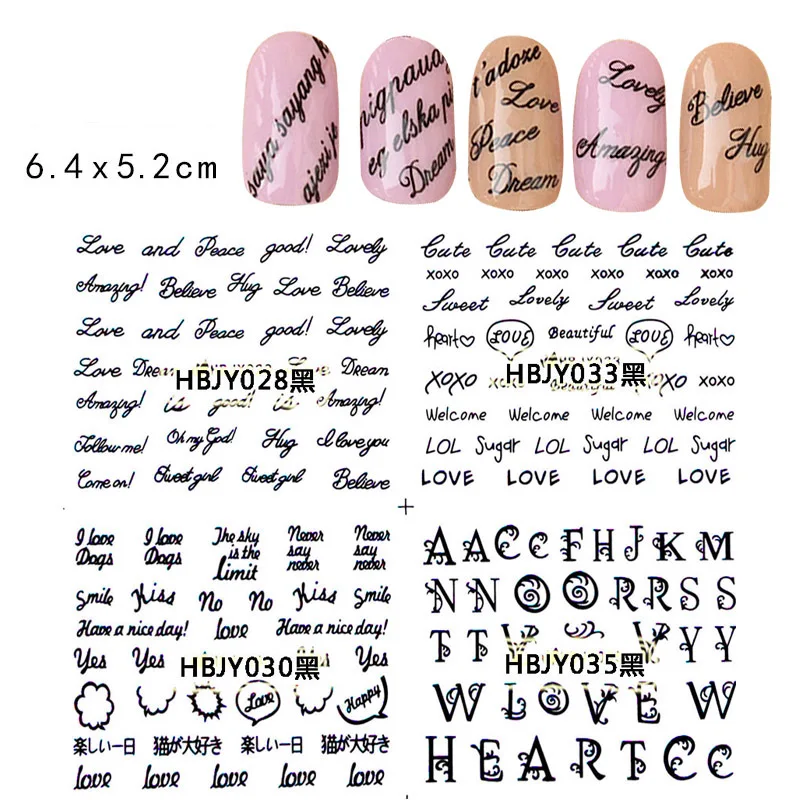 saya sayang k
ajezi je
pigpaua
eg elska þi
Dream
t'adoze
Love
Peace
Dream
Lovely
Amazing
Believe
Hug
6.4x5.2cm
Love and Peace good! Lovely
Amazing! Believe Hug Love Believe
Love and Peace good! Lovely
Love Dream Love Dream
HBJY028黑
Amazing! is good! is Amazing!
Follow me! Oh my God! Hug I love you
Come on! Sweet girl Sweet girl Believe
Cute Cute Cute Cute Cute
xoxo xoxo xoxo xoxo xoxo xoxo
Sweet Lovely Sweet Lovely
heart LOVE Beautiful LOVE heart
HBJY033黑
XOXO XOXO XOXO
Welcome Welcome Welcome Welcome
LOL Sugar LOL Sugar LOL Sugar
LOVE LOVE LOVE LOVE LOVE
I love Dogs
I love Dogs
The sky is the limit
Never say never
Never say never
Smile Kiss No No Kiss Smile
Have a nice day! love Have a nice day!
Yes Yes Yes Yes
HBJY030黑
Love Happy
楽しい一日 猫が大好き 楽しい一日 猫が大好き
love love love love love
A A C C F H J K M
N N O O R R S S
T T V Y Y
HBJY035黑
W L O V E W
H E A R T C C